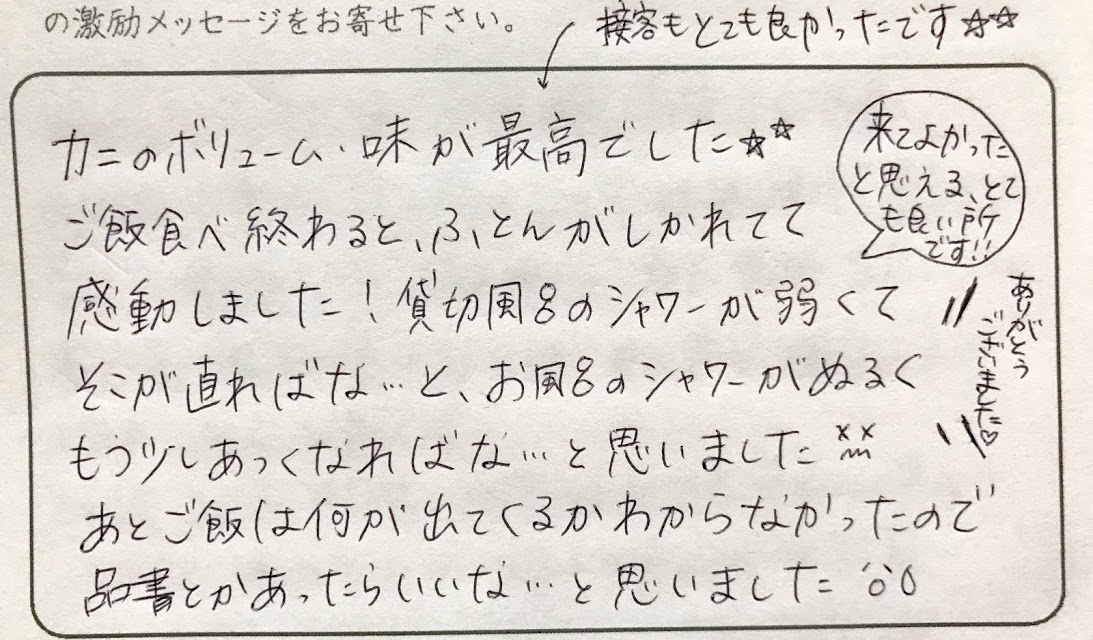 の激励メッセージをお寄せ下さい。
接客もとても良かったです☆☆
カニのボリューム・味が最高でした☆☆
ご飯食べ終わると、ふとんがしかれてて
感動しました！貸切風呂のシャワーが弱くて
そこが直ればな…と、お風呂のシャワーがぬるく
もう少しあっくなればな…と思いました
あとご飯は何が出てくるかわからなかったので
品書とかあったらいいな…と思いました
来てよかった
と思える、とて
も良い所
です!!
ありがとう
ございました♡